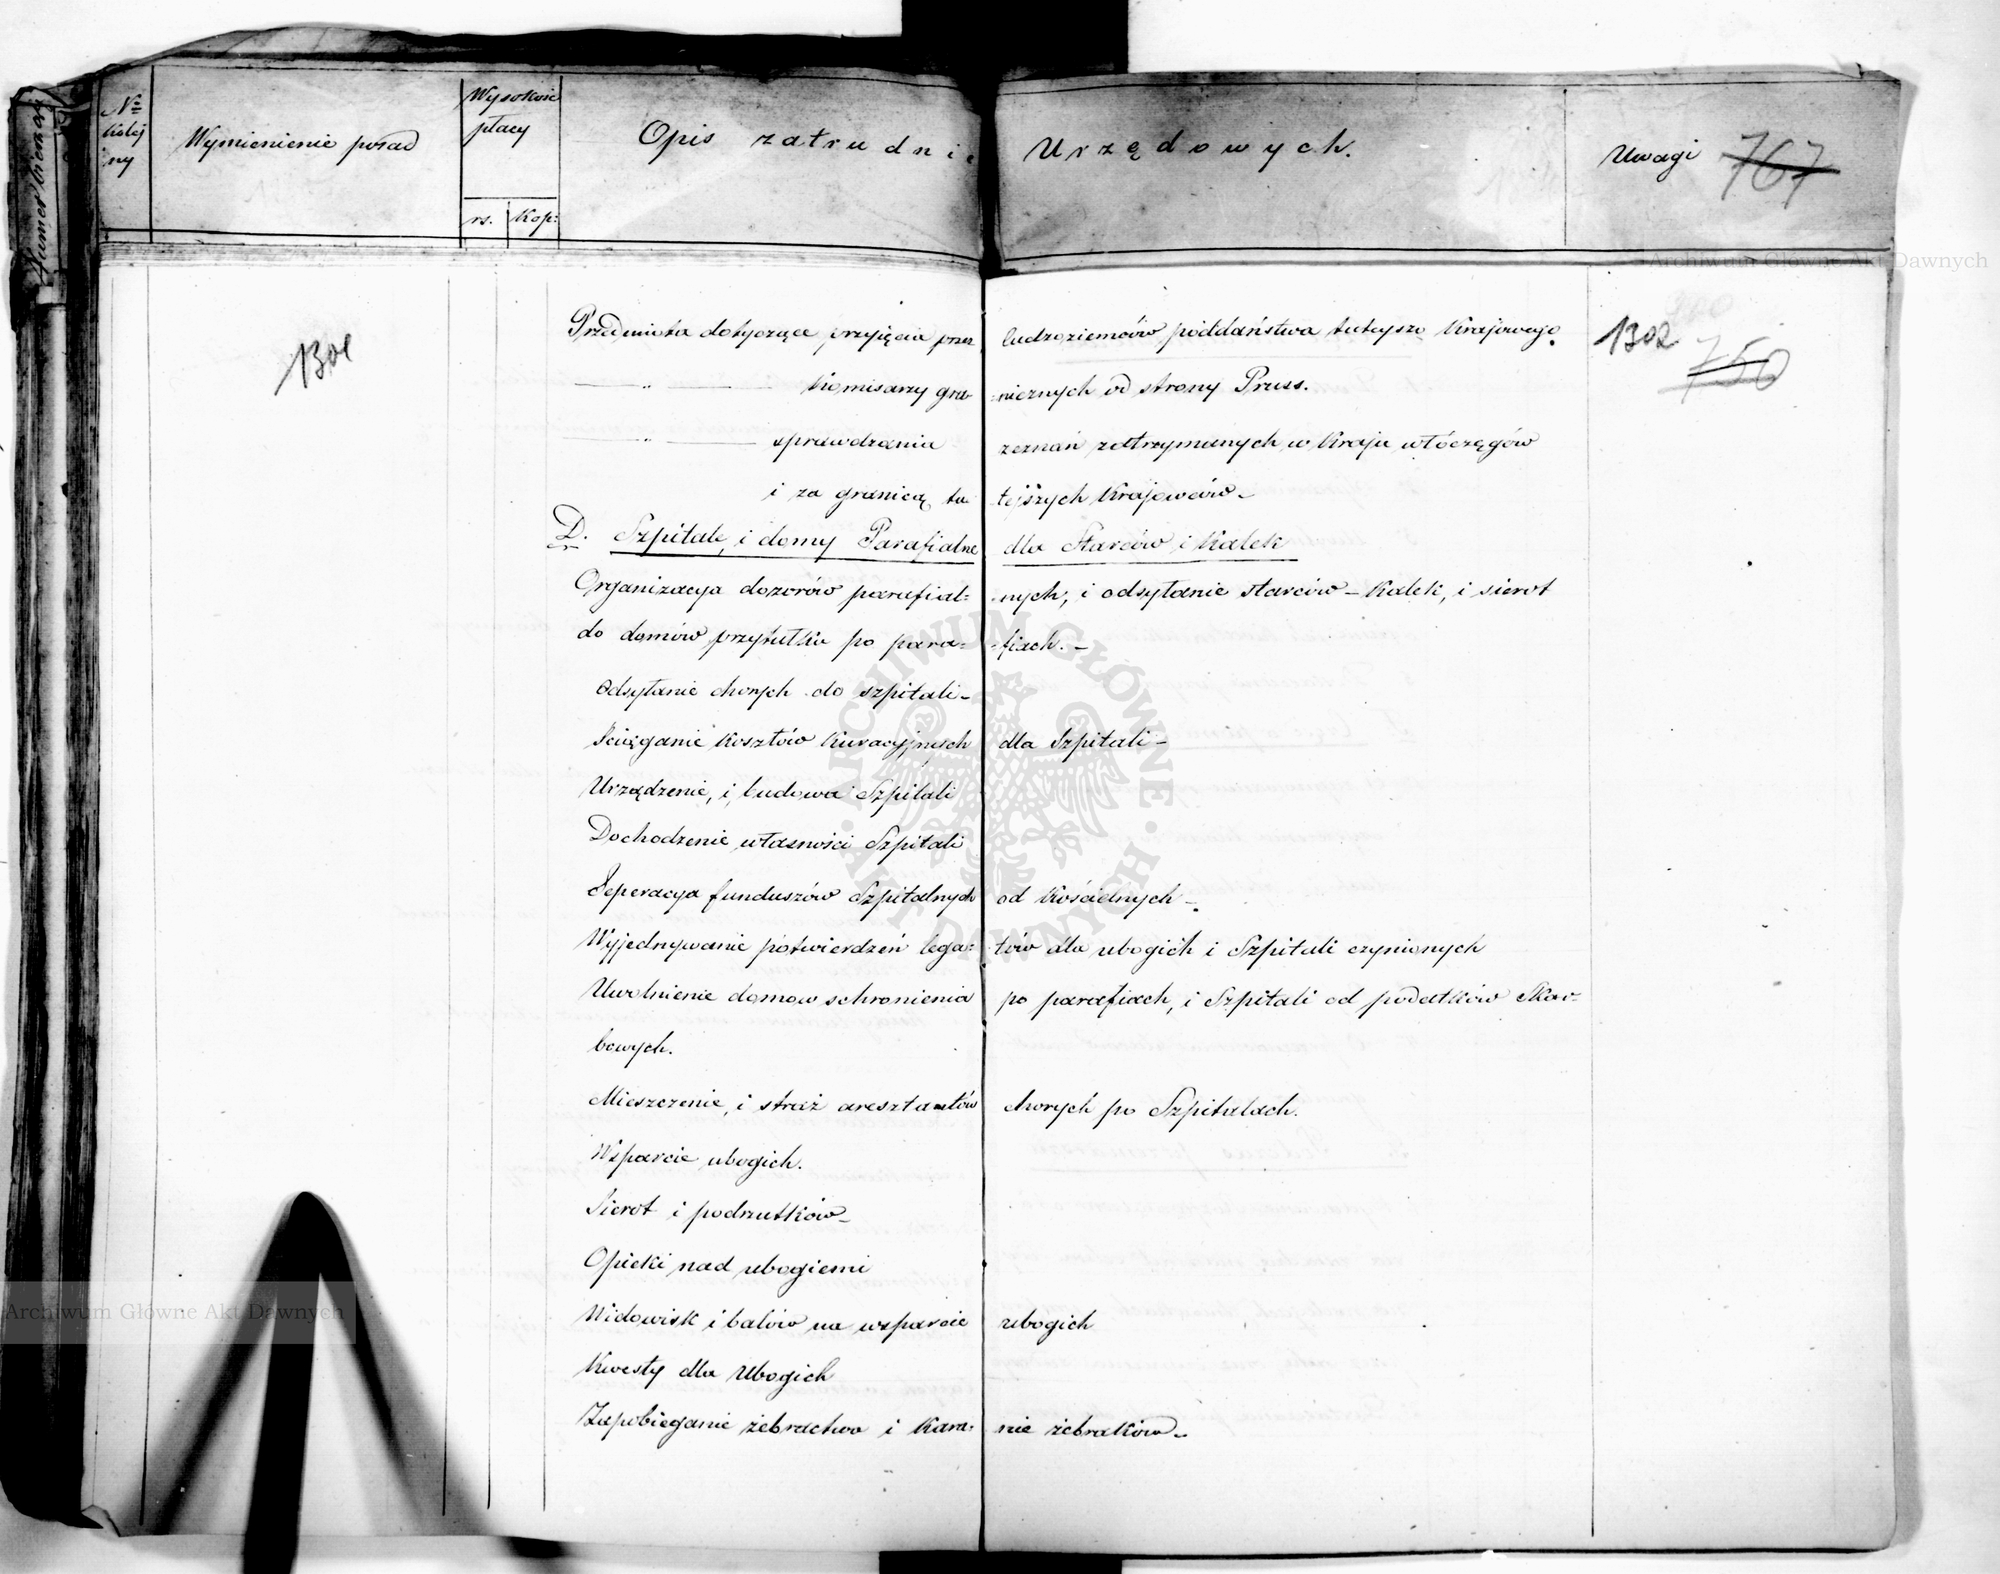 Numer bieżący
№ kolej ny
Wymienienie posad
Wysokość płacy
rs. Kop:
Opis zatrudnie Urzędowych.
Uwagi 767
1301
1302
750
Przedmiota dotyczące przyjęcia przez cudzoziemców poddaństwa tutejszo Krajowego.
— " — Komisarzy gra- =nicznych od strony Pruss.
— " — sprawdzania zeznań zatrzymanych w Kraju włóczęgów
i za granicą tu tejszych Krajowców –
D. Szpitale, i domy Parafialne dla Starców i Kalek
Organizacya dozorów parafial= =nych, i odsyłanie starców – Kalek, i sierot
do domów przytułku po para= =fiach. –
Odsyłanie chorych do szpitali –
Ściąganie Kosztów Kuracyjnych dla Szpitali –
Urządzenie, i budowa Szpitali
Dochodzenie własności Szpitali
Seperacya funduszów Szpitalnych od Kościelnych –
Wyjednywanie potwierdzeń lega= tów dla ubogich i Szpitali czynionych
Uwolnienie domow schronienia po parafiach, i Szpitali od podatków Skar=
bowych.
Mieszczenie, i straż aresztantów chorych po Szpitalach.
Wsparcie ubogich.
Sierot i podrzutków –
Opieki nad ubogiemi
Widowisk i balów na wsparcie ubogich
Kwesty dla Ubogich
Zapobieganie żebractwa i Kara= nie żebraków –
Archiwum Główne Akt Dawnych
Archiwum Główne Akt Dawnych
ARCHIWUM GŁÓWNE AKT DAWNYCH